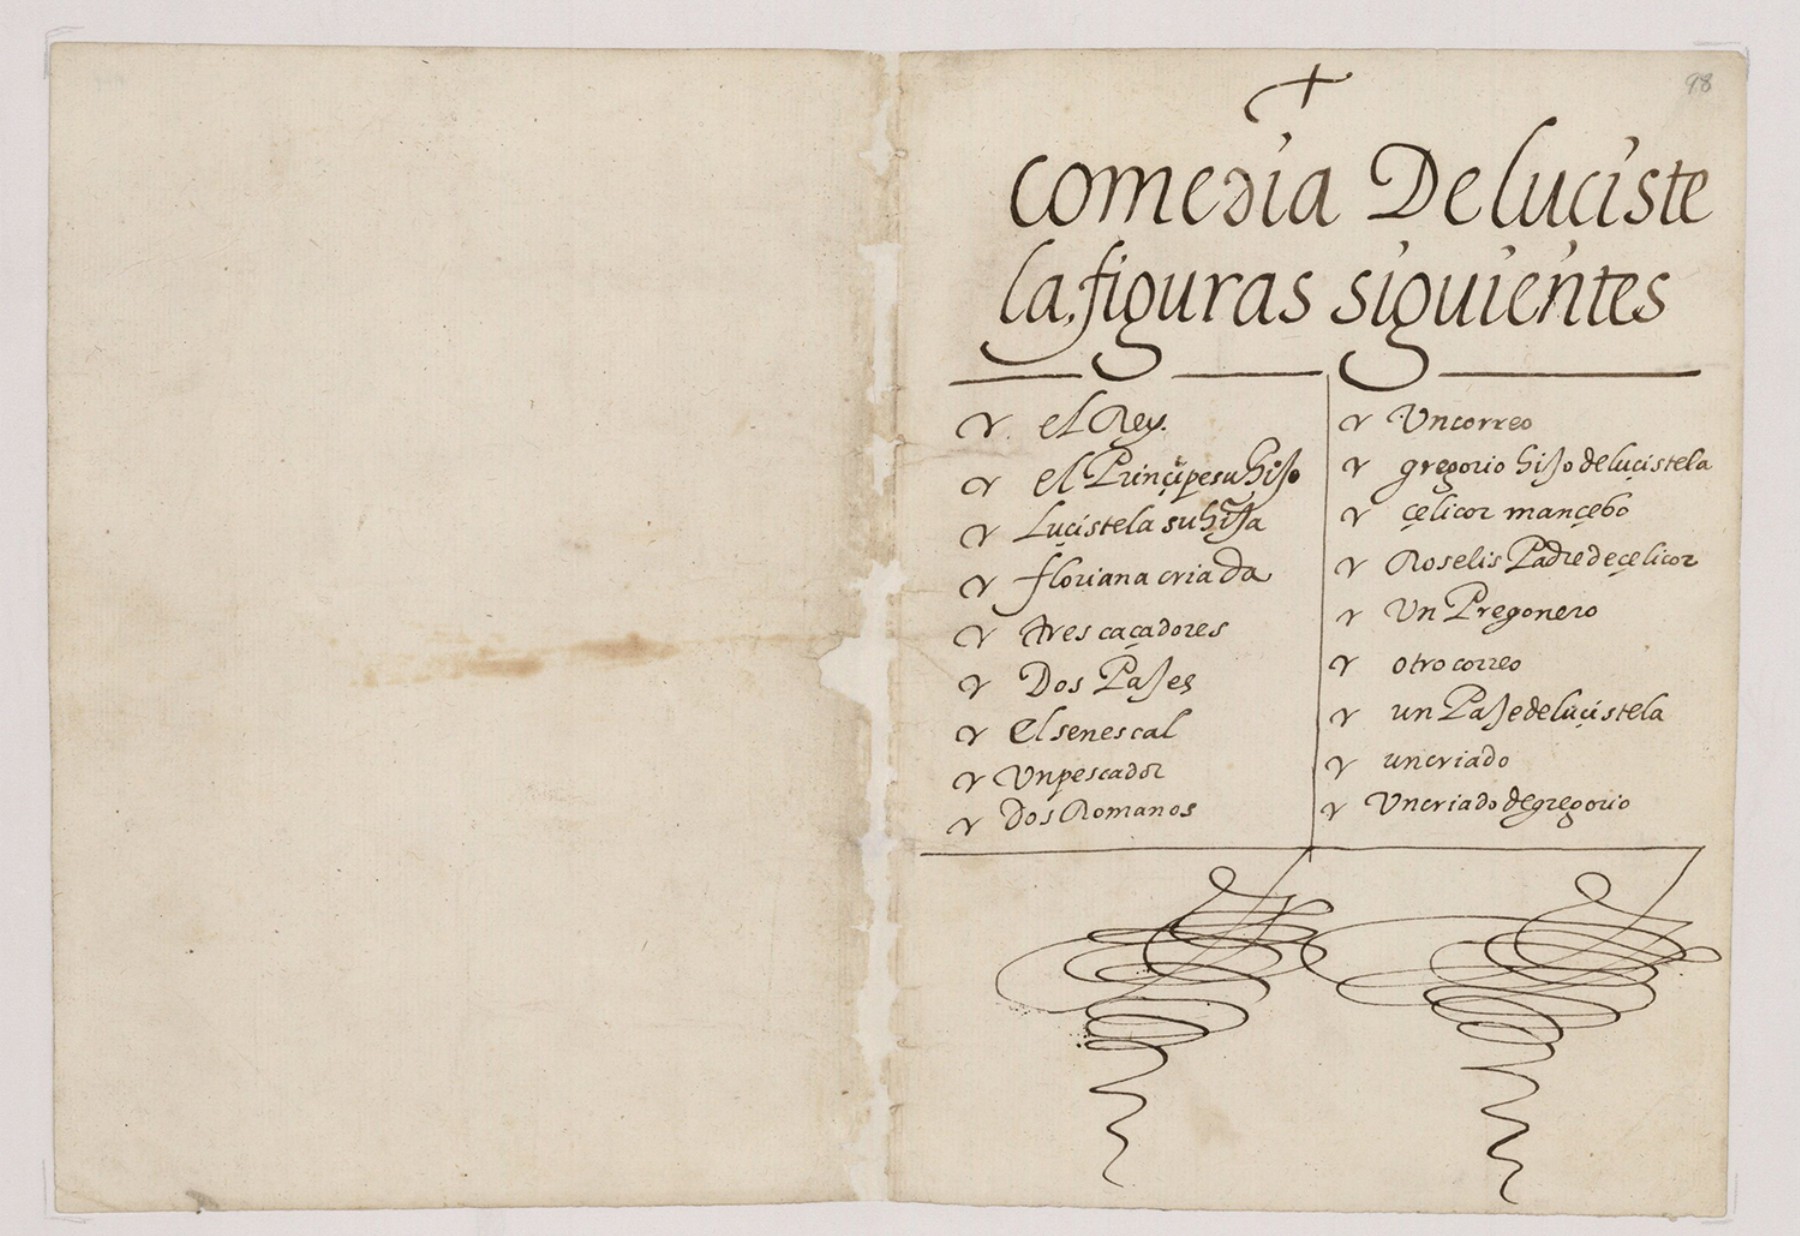 98
comedia De luciste
la, figuras siguientes
el Rey.
el Prinçipe su hijo
Luçistela su hija
floriana criada
tres caçadores
Dos Pajes
El senescal
Un pescador
Dos Romanos
Un correo
gregorio hijo de luçistela
çelicor mançebo
Roselis Padre de çelicor
Un Pregonero
otro correo
un Paje de luçistela
un criado
Un criado de gregorio